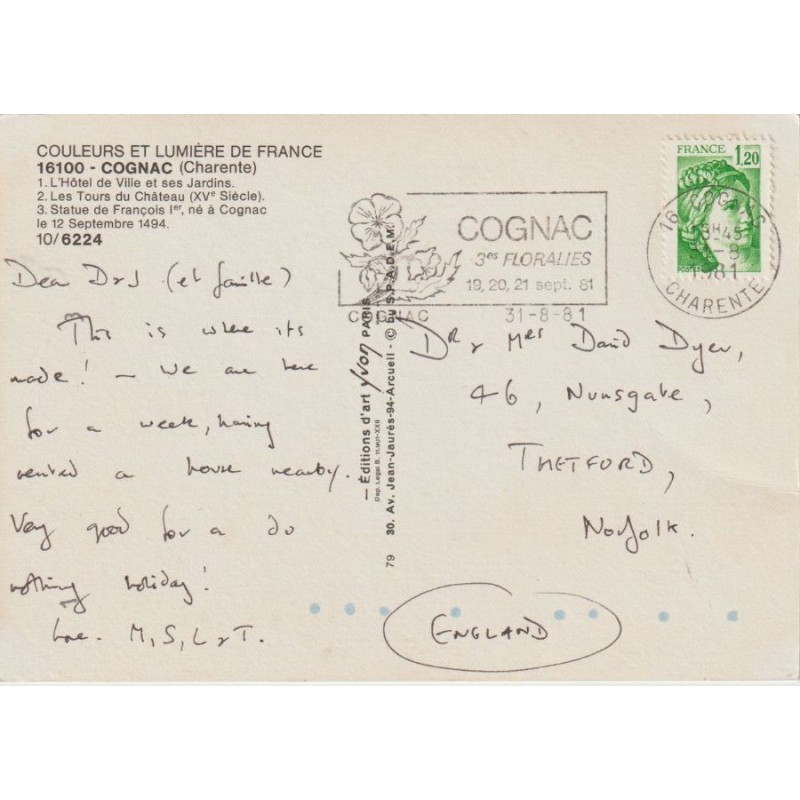 COULEURS ET LUMIÈRE DE FRANCE
16100 - COGNAC (Charente)
1. L'Hôtel de Ville et ses Jardins.
2. Les Tours du Château (XVe Siècle).
3. Statue de François Ier, né à Cognac
le 12 Septembre 1494.
10/6224
Dear D & J (et famille)
This is where its
made! - We are here
for a week, having
rented a house nearby.
Very good for a do
nothing holiday!
Love. M, S, L & T.
— Éditions d'art Yvon PARIS
Dép. Légal B.
30. Av. Jean-Jaurès-94-Arcueil - © by S.P.A.D.E.M.
79
COGNAC
3es FLORALIES
19, 20, 21 sept. 81
COGNAC 31-8-81
FRANCE
1,20
POSTES
16 COGNAC
1981
CHARENTE
Dr & Mrs David Dyer,
46, Nunsgate,
THETFORD,
Norfolk.
ENGLAND